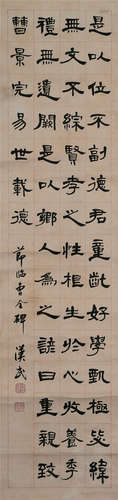 是以位不副德君童齔好學甄極毖緯
无文不綜賢孝之性根生於心收養季
禮无遺闕是以鄉人為之諺曰重親致
曹景完易世載德
節臨曹全碑 漢武